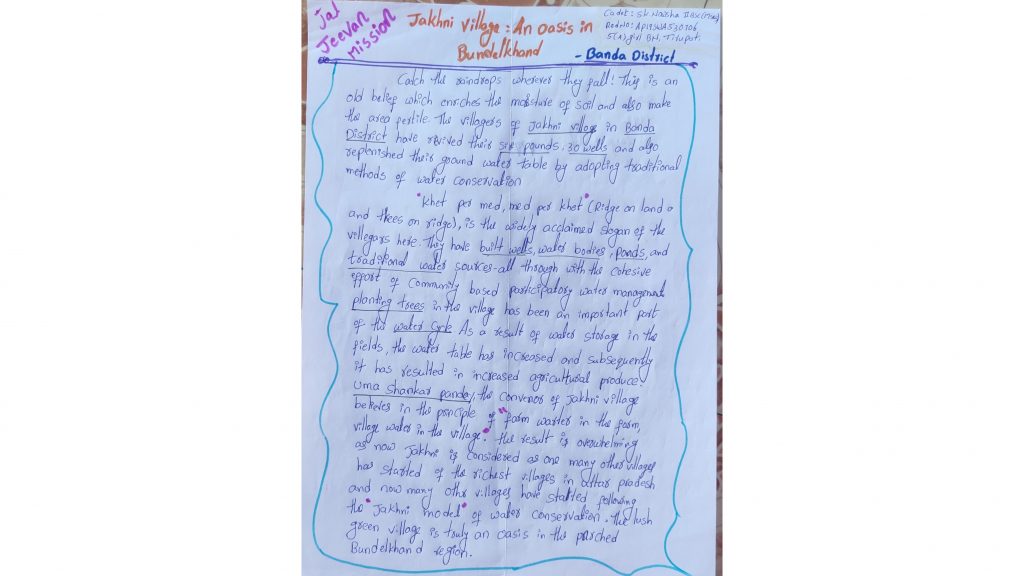 Jal
Jeevan
Mission
Jakhni Village : An Oasis in
Bundelkhand
- Banda District
Cadet: Sk. Naisha II BSc
5(A) girl BN, Tirupati.
Catch the raindrops wherever they fall! This is an
old belief which enriches the moisture of soil and also make
the area fertile. The villagers of Jakhni village in Banda
District have revived their six pounds, 30 wells and also
replenished their ground water table by adopting traditional
methods of water conservation
"Khet per med, med per khet" (Ridge on land
and trees on ridge), is the widely acclaimed slogan of the
villegars here. They have built wells, water bodies, ponds, and
traditional water sources-all through with the cohesive
effort of Community based participatory water management
planting trees in the village has been an important part
of the water cycle As a result of water storage in the
fields, the water table has increased and subsequently
it has resulted in increased agricultural produce
Uma Shankar pandey, the convenor of Jakhni village
believes in the principle of "farm warter in the farm,
village water in the village". The result is overwhelming
as now Jakhni is considered as one many other villages
has started of the richest villages in uttar pradesh
and now many other villages have started following
the "Jakhni model" of water conservation. The lush
green village is truly an oasis in the parched
Bundelkhand region.